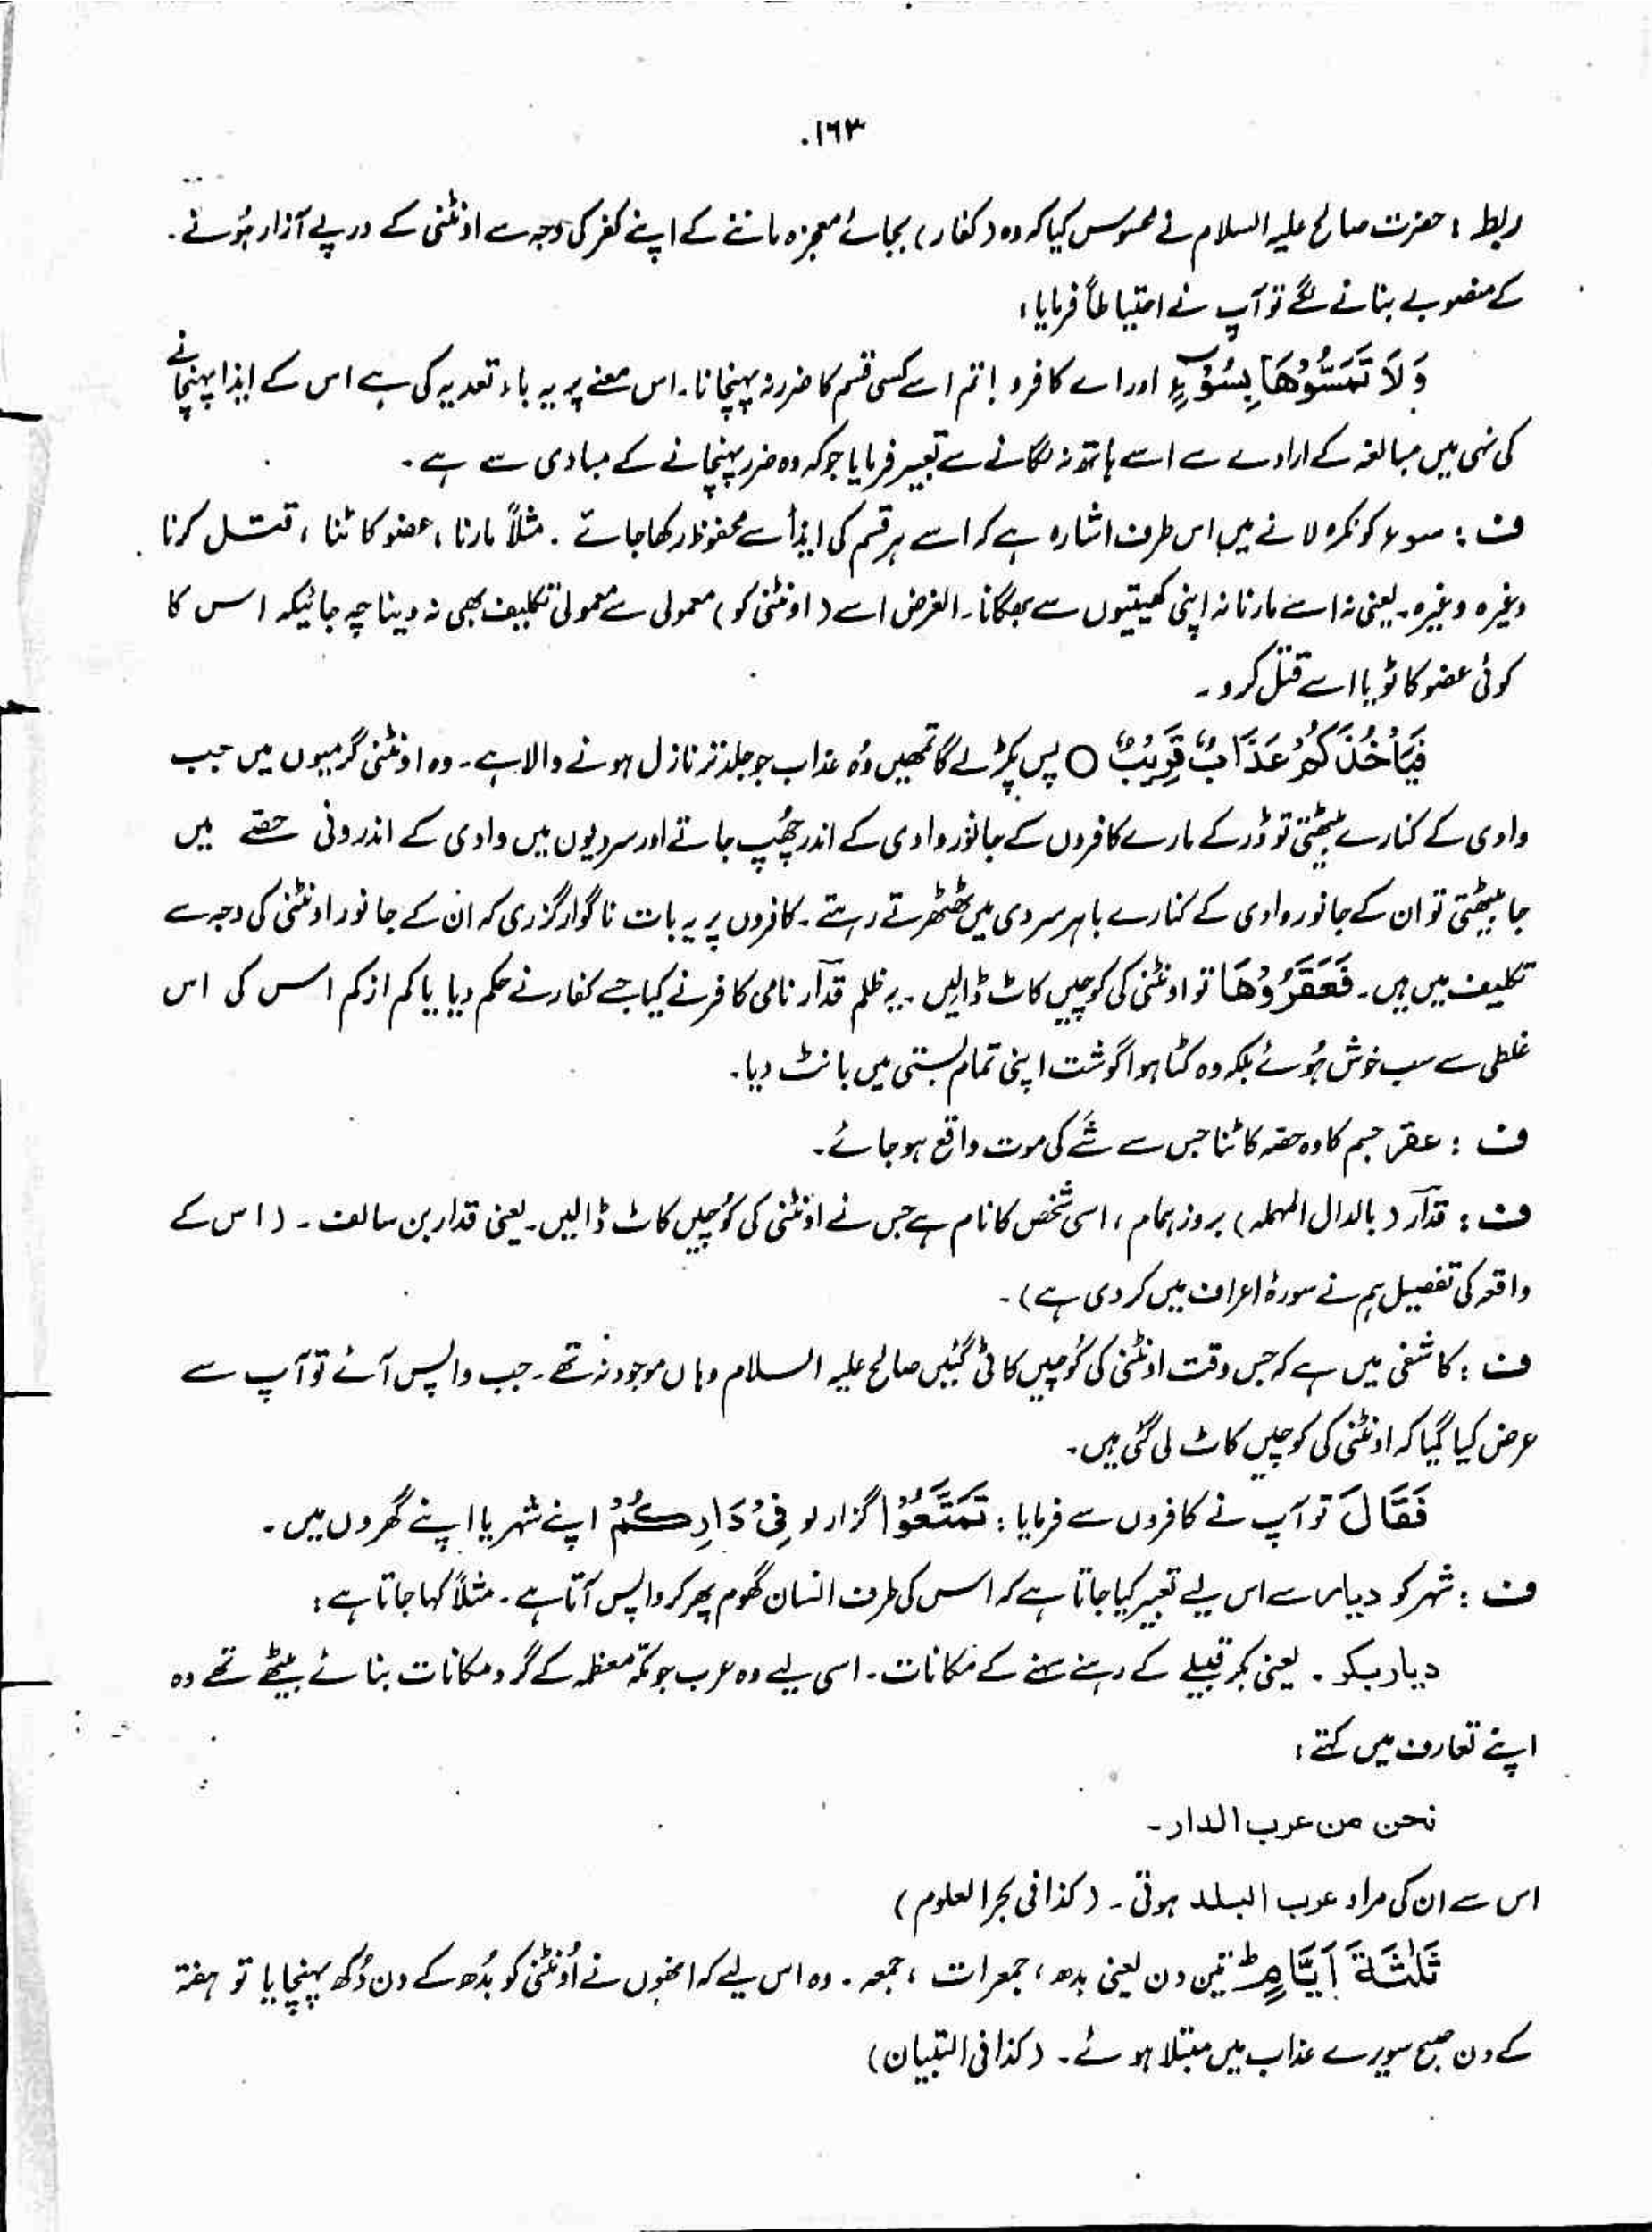 ۱۶۳
ربط : حضرت صالح علیہ السلام نے محسوس کیا کہ وہ (کفار) بجائے معجزہ ماننے کے اپنے کفر کی وجہ سے اونٹنی کے درپے آزار ہُونے۔
کے منصوبے بنانے لگے تو آپ نے احتیاطاً فرمایا :
وَلَا تَمَسُّوْهَا بِسُوْٓءٍ اور اے کافرو ! تم اسے کسی قسم کا ضرر نہ پہنچانا۔ اس معنے پر یہ باء تعدیہ کی ہے اس کے ایذا پہنچانے
کی نہی میں مبالغہ کے ارادے سے اسے ہاتھ نہ لگانے سے تعبیر فرمایا جو کہ وہ ضرر پہنچانے کے مبادی سے ہے۔
ف : سوء کو نکرہ لانے میں اس طرف اشارہ ہے کہ اسے ہر قسم کی ایذأ سے محفوظ رکھا جائے۔ مثلاً مارنا ، عضو کاٹنا ، قتل کرنا
وغیرہ وغیرہ۔ یعنی نہ اسے مارنا نہ اپنی کھیتیوں سے بھگانا۔ الغرض اسے (اونٹنی کو) معمولی سے معمولی تکلیف بھی نہ دینا چہ جائیکہ اس کا
کوئی عضو کاٹو یا اسے قتل کرو۔
فَيَاْخُذَكُمْ عَذَابٌ قَرِيْبٌ ○ پس پکڑ لے گا تمھیں وُہ عذاب جو جلد تر نازل ہونے والا ہے۔ وہ اونٹنی گرمیوں میں جب
وادی کے کنارے بیٹھتی تو ڈر کے مارے کافروں کے جانور وادی کے اندر چُھپ جاتے اور سردیوں میں وادی کے اندرونی حصے میں
جا بیٹھتی تو ان کے جانور وادی کے کنارے باہر سردی میں ٹھٹھرتے رہتے۔ کافروں پر یہ بات ناگوار گزری کہ ان کے جانور اونٹنی کی وجہ سے
تکلیف میں ہیں۔ فَعَقَرُوْهَا تو اونٹنی کی کوچیں کاٹ ڈالیں۔ یہ ظلم قدآر نامی کافر نے کیا جسے کفار نے حکم دیا یا کم از کم اس کی اس
غلطی سے سب خوش ہُوئے بلکہ وہ کٹا ہوا گوشت اپنی تمام بستی میں بانٹ دیا۔
ف : عقر جسم کا وہ حصہ کاٹنا جس سے شَے کی موت واقع ہو جائے۔
ف : قدآر (بالدال المہملہ) بروز ہمام ، اسی شخص کا نام ہے جس نے اونٹنی کی کوُچیں کاٹ ڈالیں۔ یعنی قدار بن سالف۔ (اس کے
واقعہ کی تفصیل ہم نے سورۂ اعراف میں کر دی ہے)۔
ف : کاشفی میں ہے کہ جس وقت اونٹنی کی کوُچیں کاٹی گئیں صالح علیہ السلام وہاں موجود نہ تھے۔ جب واپس آئے تو آپ سے
عرض کیا گیا کہ اونٹنی کی کوچیں کاٹ لی گئی ہیں۔
فَقَالَ تو آپ نے کافروں سے فرمایا : تَمَتَّعُوْا گزار لو فِیْ دَارِكُمْ اپنے شہر یا اپنے گھروں میں۔
ف : شہر کو دیار سے اس لیے تعبیر کیا جاتا ہے کہ اس کی طرف انسان گھوم پھر کر واپس آتا ہے۔ مثلاً کہا جاتا ہے :
دیار بکر۔ یعنی بکر قبیلے کے رہنے سہنے کے مکانات۔ اسی لیے وہ عرب جو مکّہ معظمہ کے گرد مکانات بنائے بیٹھے تھے وہ
اپنے تعارف میں کہتے :
نحن من عرب الدار۔
اس سے ان کی مراد عرب البلد ہوتی۔ (کذا فی بحر العلوم)
ثَلٰثَةَ اَيَّامٍ ط تین دن یعنی بدھ ، جمعرات ، جمعہ۔ وہ اس لیے کہ انھوں نے اُونٹنی کو بُدھ کے دن دُکھ پہنچایا تو ہفتہ
کے دن صبح سویرے عذاب میں مبتلا ہوئے۔ (کذا فی التبیان)